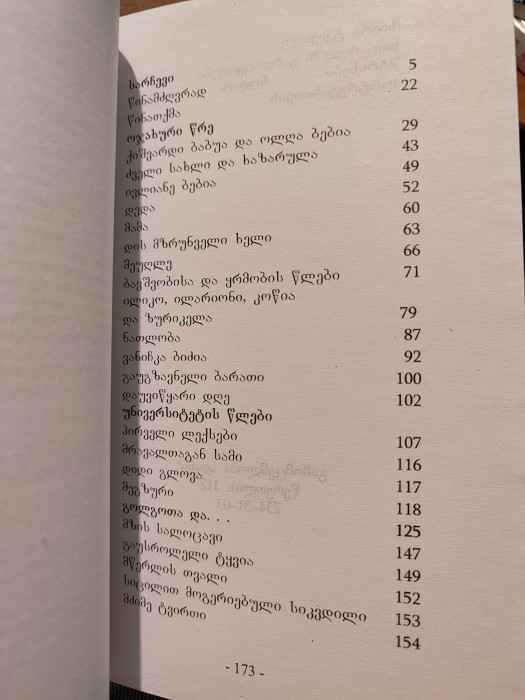 სარჩევი
წინამძღვრად 5
წინათქმა 22
ოჯახური წრე
ქიშვარდი ბაბუა და ოლღა ბებია 29
ძველი სახლი და ხაზარულა 43
ივლიანე ბებია 49
დედა 52
მამა 60
დის მზრუნველი ხელი 63
მეუღლე 66
ბავშვობისა და ყრმობის წლები 71
ილიკო, ილარიონი, კოწია
და ზურიკელა 79
ნათლობა 87
ვანიჩკა ბიძია 92
გაუგზავნელი ბარათი 100
დაუვიწყარი დღე 102
უნივერსიტეტის წლები
პირველი ლექსები 107
მრავალთაგან სამი 116
დიდი გლოვა 117
მეგზური 118
გოლგოთა და. . . 125
მზის სალოცავი 147
გაუსროლელი ტყვია 149
მწერლის თვალი 152
სიცილით მოგერიებული სიკვდილი 153
მძიმე ტვირთი 154
- 173 -